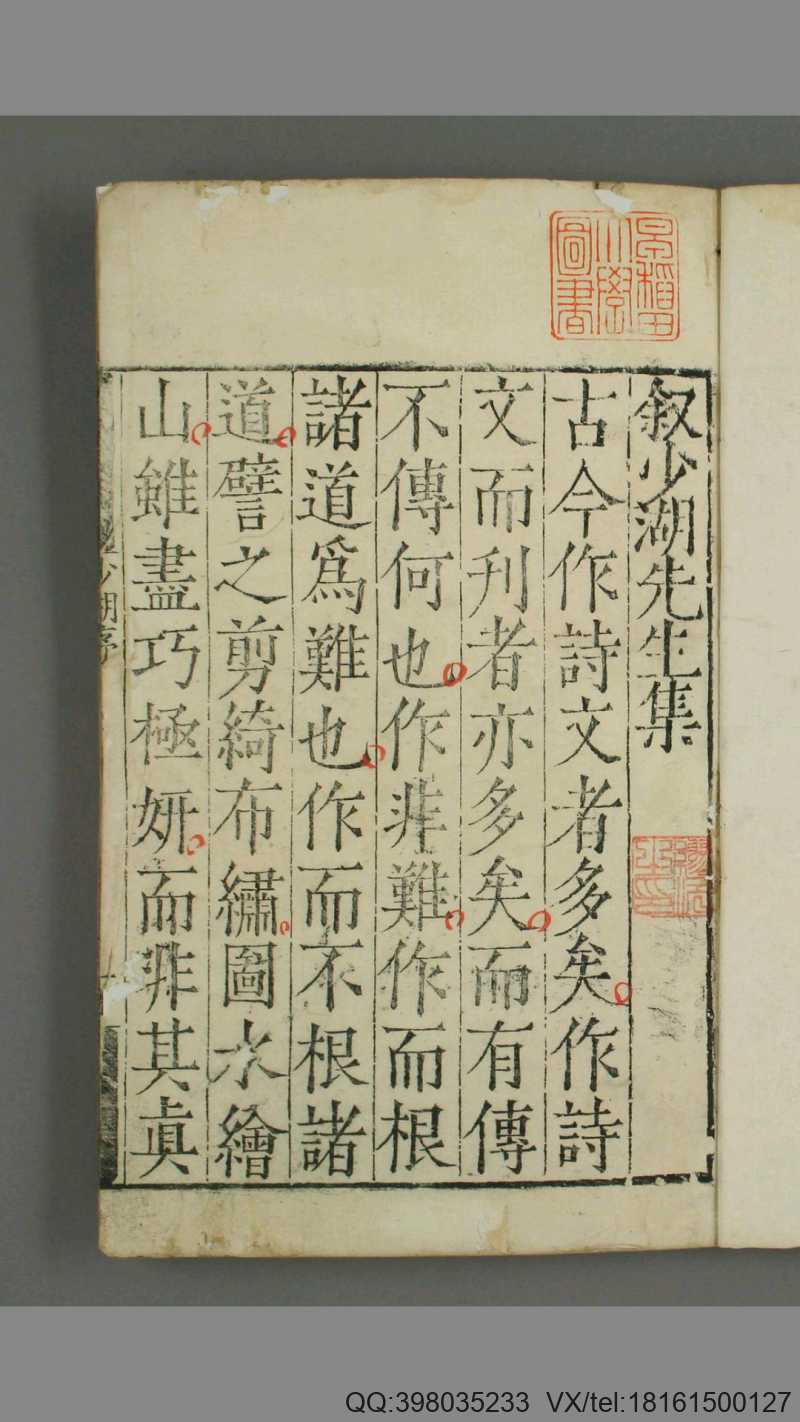 叙少湖先生集
古今作詩文者多矣作詩
文而刋者亦多矣而有傳
不傳何也作非難作而根
諸道爲難也作而不根諸
道譬之剪綺布繡圖水繪
山雖盡巧極妍而非其眞
圖書
QQ:398035233 VX/tel:18161500127